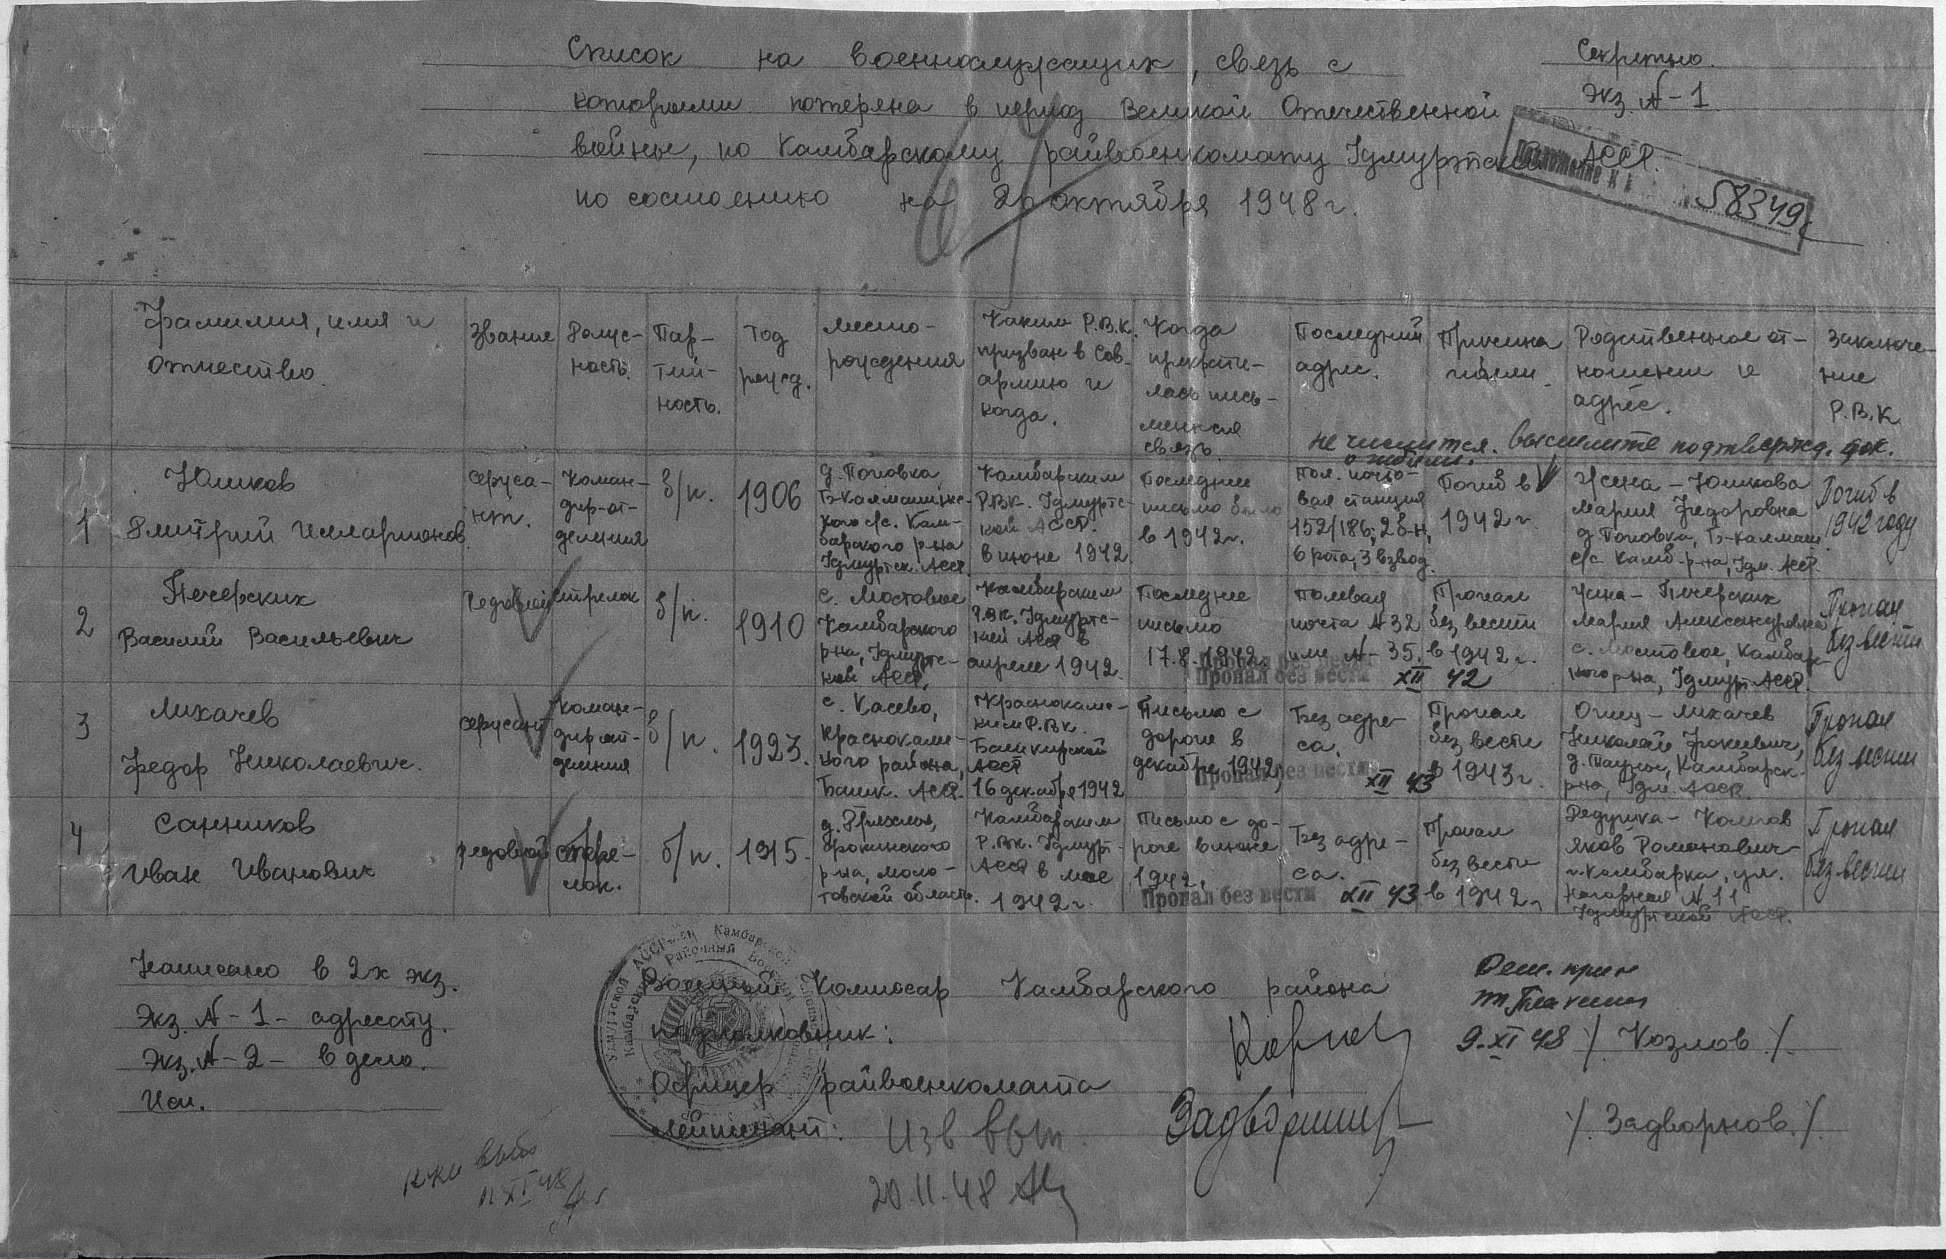 Список на военнослужащих, связь с
которыми потеряна в период Великой Отечественной
войны, по Камбарскому райвоенкомату Удмуртской АССР.
по состоянию на 26 октября 1948 г.
Секретно.
Экз. № - 1
Приложение к
58349с
Фамилия, имя и
отчество.
Звание
Должность.
Пар-
тий-
ность.
Год
рожд.
Место-
рождения
Каким Р.В.К.
призван в Сов.
армию и
когда.
Когда
прекрати-
лась пись-
менная
связь.
Последний
адрес.
Причина
гибели.
Родственное от-
ношение и
адрес.
Заключе-
ние
Р.В.К
не числится. Вышлите подтвержд. док.
о гибели.
1
Юшков
Дмитрий Илларионов.
сержа-
нт.
Коман-
дир от-
деления
б/п.
1906
д. Поповка,
Б-Калмашинс-
кого с/с. Кам-
барского р-на
Удмуртск. АССР.
Камбарским
РВК. Удмуртс-
кой АССР.
в июне 1942.
Последнее
письмо было
в 1942г.
Пол. почто-
вая станция
152/186, 2 б-н,
6 рота, 3 взвод.
Погиб в
1942 г.
Жена - Юшкова
Мария Федоровна
д. Поповка, Б-Калмаш.
с/с Камб. р-на, Удм. АССР
Погиб в
1942 году
2
Печерских
Василий Васильевич
рядовой
стрелок
б/п.
1910
с. Мостовое
Камбарского
р-на, Удмуртс-
кой АССР,
Камбарским
РВК. Удмуртс-
кой АССР в
апреле 1942.
Последнее
письмо
17.8.1942
Полевая
почта № 32
или № - 35.
Пропал
без вести
в 1942 г.
Жена - Печерских
Мария Александровна
с. Мостовое, Камбарс-
кого р-на, Удмурт АССР.
Пропал
без вести
Пропал без вести
XII 42
3
Лихачев
Федор Николаевич.
сержант
Коман-
дир от-
деления
б/п.
1923.
с. Касево,
Краснокамс-
кого района,
Башк. АССР.
Краснокамс-
ким Р.В.К.
Башкирской
АССР
16 декабря 1942
Письмо с
дороги в
декабре 1942,
Без адре-
са.
Пропал
без вести
в 1943 г.
Отец - Лихачев
Николай Фокиевич,
Камбарск.
р-на, Удм. АССР.
Пропал
без вести
Пропал без вести
XII 43
4
Санников
Иван Иванович
рядовой
стре-
лок.
б/п.
1915.
р-на, Моло-
товской области.
Камбарским
Р.В.К. Удмурт.
АССР в мае
1942 г.
Письмо с до-
роги в июне
1942,
Без адре-
са.
Пропал
без вести
в 1942 г.
Дедушка -
Яков Романович
г. Камбарка, ул.
Нагорная № 11
Удмуртской АССР.
Пропал
без вести
Пропал без вести
XII 43
Написано в 2х экз.
Экз. № - 1 - адресату.
Экз. № - 2 - в дело.
Исп.
Военный Комиссар Камбарского района
подполковник:
/ Козлов /.
Офицер райвоенкомата
лейтенант:
/ Задворнов /.
9.XI 48
Изв выт.
20.11.48